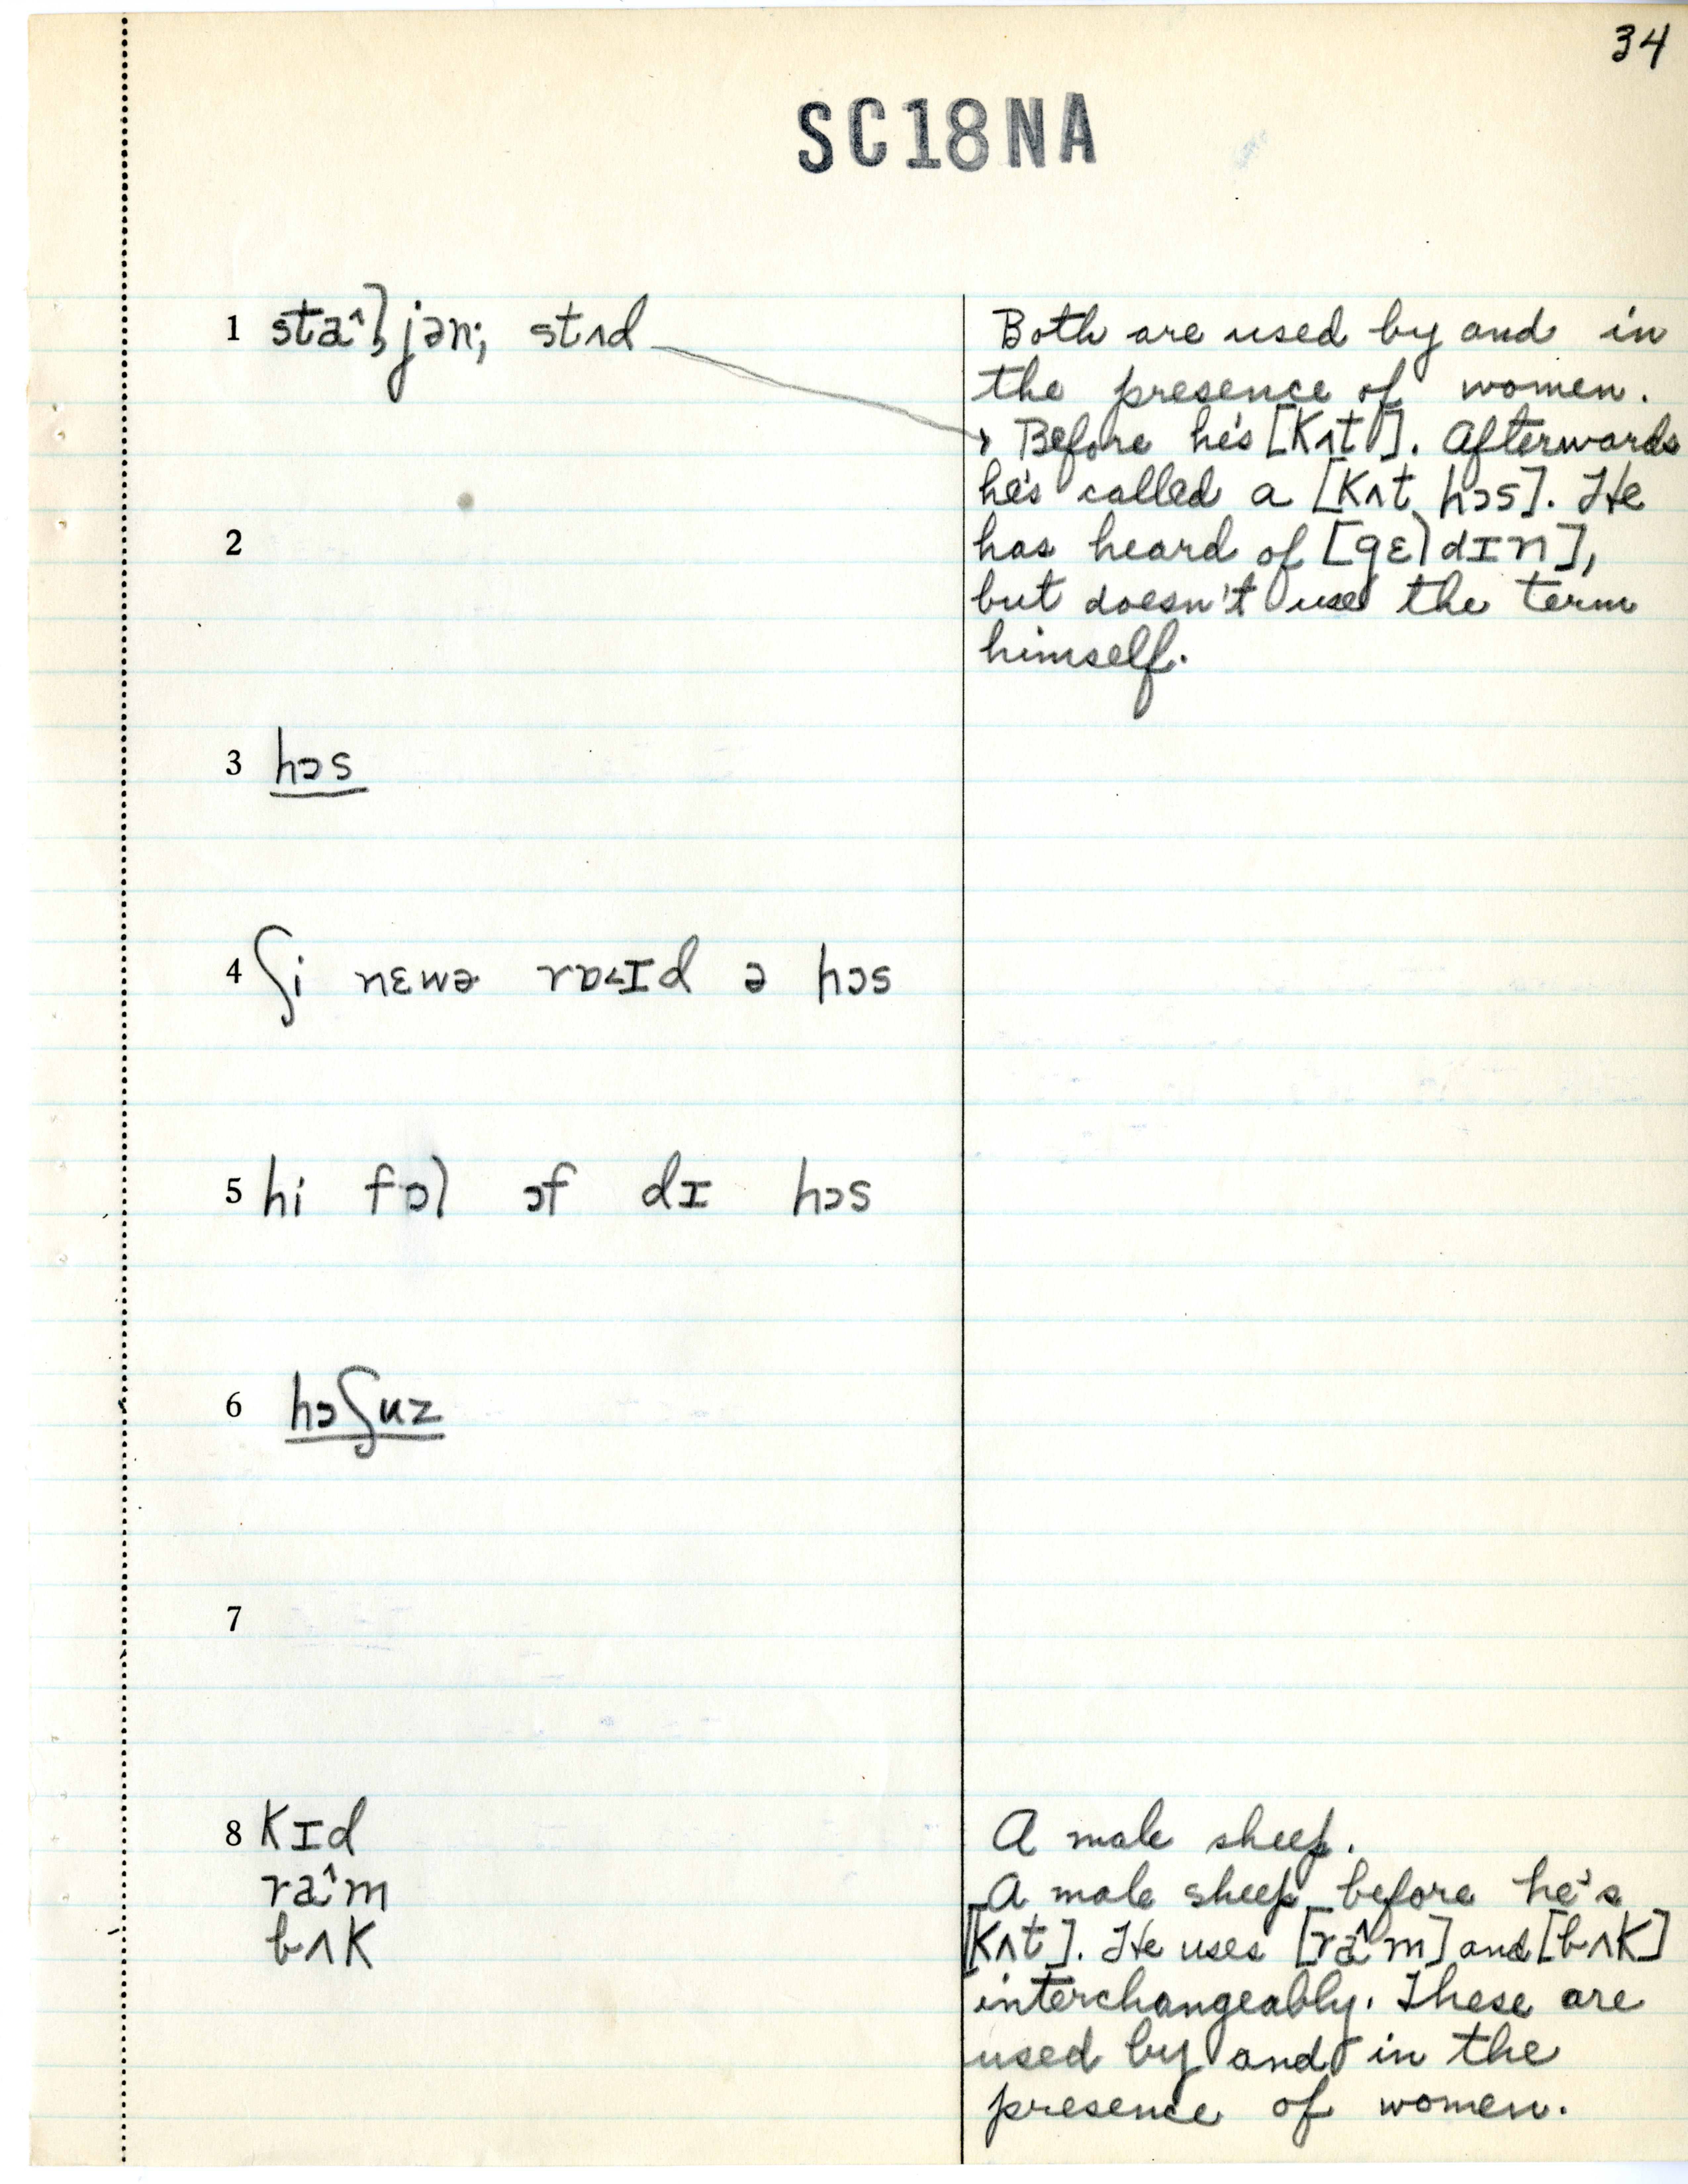 34
SC18NA
1 staˆljən; stʌd
Both are used by and in
the presence of women.
Before he's [kʌt]. Afterwards
he's called a [kʌt hɔs]. He
2
has heard of [gɛldɪn],
but doesn't use the term
himself.
3 hɔs
4 ʃi nɛwə rɒ<ɪd ə hɔs
5 hi fɔl ɔf dɪ hɔs
6 hɔʃuz
7
8 kɪd
A male sheep.
raˆm
A male sheep before he's
bʌk
[kʌt]. He uses [raˆm] and [bʌk]
interchangeably. These are
used by and in the
presence of women.